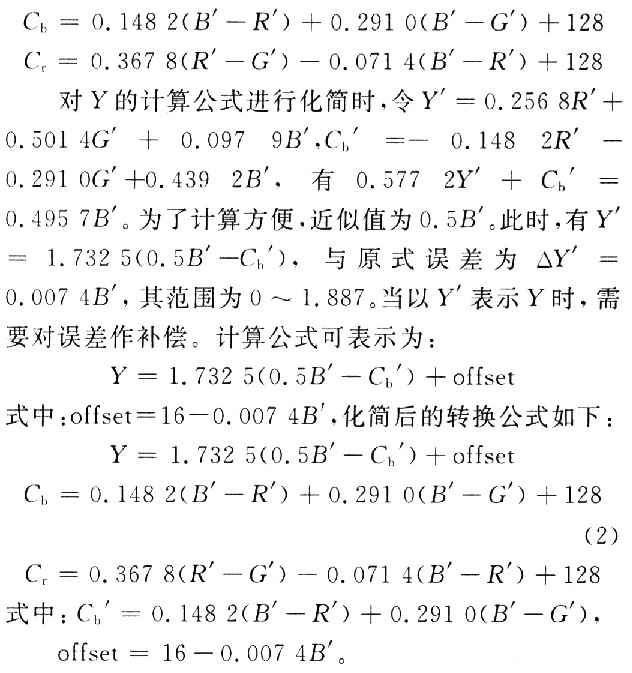 C_b = 0.148 2(B′－R′)＋0.291 0(B′－G′)＋128
C_r = 0.367 8(R′－G′)－0.071 4(B′－R′)＋128
对Y的计算公式进行化简时,令Y′＝0.256 8R′＋
0.501 4G′ ＋ 0.097 9B′,C_b′ ＝－ 0.148 2R′ －
0.291 0G′＋0.439 2B′, 有 0.577 2Y′ ＋ C_b′ ＝
0.495 7B′。为了计算方便,近似值为0.5B′。此时,有Y′
＝ 1.732 5(0.5B′－C_b′), 与原式误差为 ΔY′ ＝
0.007 4B′,其范围为0～1.887。当以Y′表示Y时,需
要对误差作补偿。计算公式可表示为:
Y ＝ 1.732 5(0.5B′－C_b′)＋offset
式中:offset＝16－0.007 4B′,化简后的转换公式如下:
Y ＝ 1.732 5(0.5B′－C_b′)＋offset
C_b ＝ 0.148 2(B′－R′)＋0.291 0(B′－G′)＋128
(2)
C_r ＝ 0.367 8(R′－G′)－0.071 4(B′－R′)＋128
式中: C_b′ ＝ 0.148 2(B′－R′)＋0.291 0(B′－G′),
offset ＝ 16－0.007 4B′。